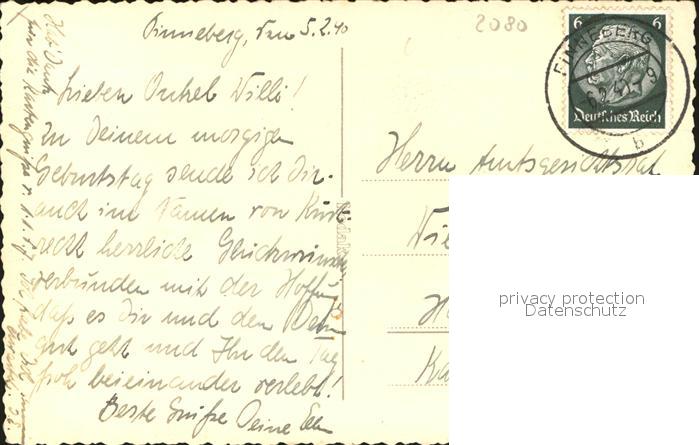 Pinneberg, den 5.2.40
Lieben Onkel Willi!
Zu Deinem morgigen
Geburtstag sende ich Dir
auch im Namen von Kurt
recht herzliche Glückwünsche
verbunden mit der Hoffnung
daß es Dir und den Dein
gut geht und Ihr den Tag
froh beieinander verlebt!
Beste Grüße Deine
Hab Dank
für die Kartengrüße v. 1.1.
2080
6 6
PINNEBERG
Deutsches Reich
b
Herrn Amtsgerichtsrat
privacy protection
Datenschutz